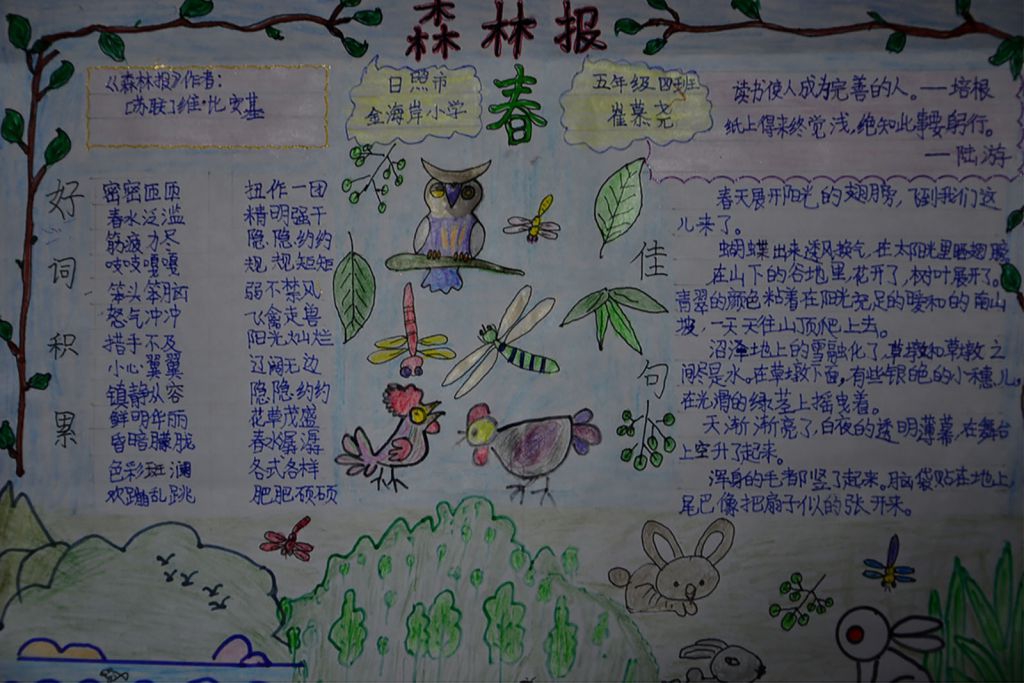 森林报
春
《森林报》作者：
[苏联]维·比安基
日照市
金海岸小学
五年级四班
崔慕尧
读书使人成为完善的人。——培根
纸上得来终觉浅，绝知此事要躬行。
——陆游
好词积累
密密匝匝 扭作一团
春水泛滥 精明强干
筋疲力尽 隐隐约约
吱吱嘎嘎 规规矩矩
笨头笨脑 弱不禁风
怒气冲冲 飞禽走兽
措手不及 阳光灿烂
小心翼翼 辽阔无边
镇静从容 隐隐约约
鲜明华丽 花草茂盛
昏暗朦胧 春水潺潺
色彩斑澜 各式各样
欢蹦乱跳 肥肥硕硕
佳句
春天展开阳光的翅膀，飞到我们这
儿来了。
蝴蝶出来透风换气，在太阳光里晒翅膀
在山下的谷地里，花开了，树叶展开了。
青翠的颜色粘着在阳光充足的暖和的南山
坡，一天天往山顶爬上去。
沼泽地上的雪融化了，草墩和草墩之
间尽是水。在草墩下面，有些银色的小穗儿，
在光滑的绿茎上摇曳着。
天渐渐亮了，白夜的透明薄幕，在舞台
上空升了起来。
浑身的毛都竖了起来。脑袋贴在地上，
尾巴像把扇子似的张开来。